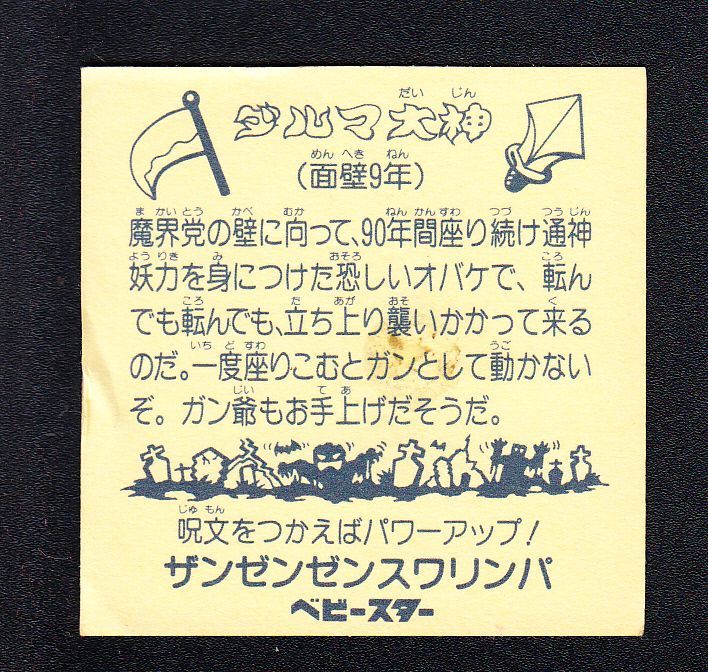 ダルマ大神
(面壁9年)
魔界党の壁に向って、90年間座り続け通神
妖力を身につけた恐しいオバケで、転ん
でも転んでも、立ち上り襲いかかって来る
のだ。一度座りこむとガンとして動かない
ぞ。ガン爺もお手上げだそうだ。
呪文をつかえばパワーアップ!
ザンゼンゼンスワリンパ
ベビースター